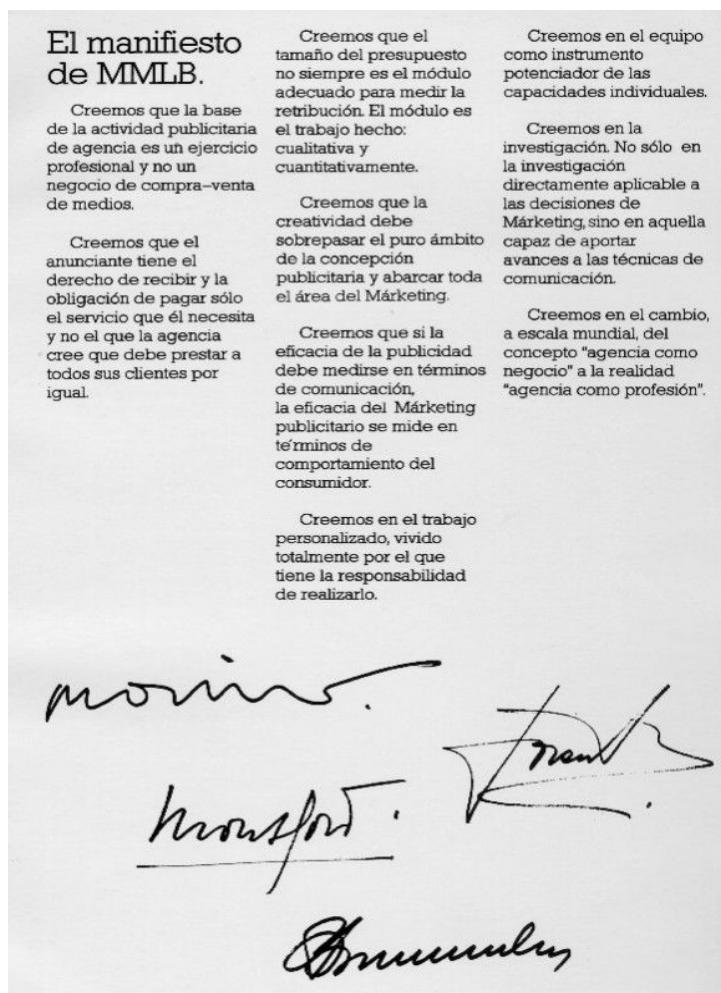 El manifiesto
de MMLB.
Creemos que la base
de la actividad publicitaria
de agencia es un ejercicio
profesional y no un
negocio de compra-venta
de medios.
Creemos que el
anunciante tiene el
derecho de recibir y la
obligación de pagar sólo
el servicio que él necesita
y no el que la agencia
cree que debe prestar a
todos sus clientes por
igual.
Creemos que el
tamaño del presupuesto
no siempre es el módulo
adecuado para medir la
retribución. El módulo es
el trabajo hecho:
cualitativa y
cuantitativamente.
Creemos que la
creatividad debe
sobrepasar el puro ámbito
de la concepción
publicitaria y abarcar toda
el área del Márketing.
Creemos que si la
eficacia de la publicidad
debe medirse en términos
de comunicación,
la eficacia del Márketing
publicitario se mide en
términos de
comportamiento del
consumidor.
Creemos en el trabajo
personalizado, vivido
totalmente por el que
tiene la responsabilidad
de realizarlo.
Creemos en el equipo
como instrumento
potenciador de las
capacidades individuales.
Creemos en la
investigación. No sólo en
la investigación
directamente aplicable a
las decisiones de
Márketing, sino en aquella
capaz de aportar
avances a las técnicas de
comunicación.
Creemos en el cambio,
a escala mundial, del
concepto "agencia como
negocio" a la realidad
"agencia como profesión".